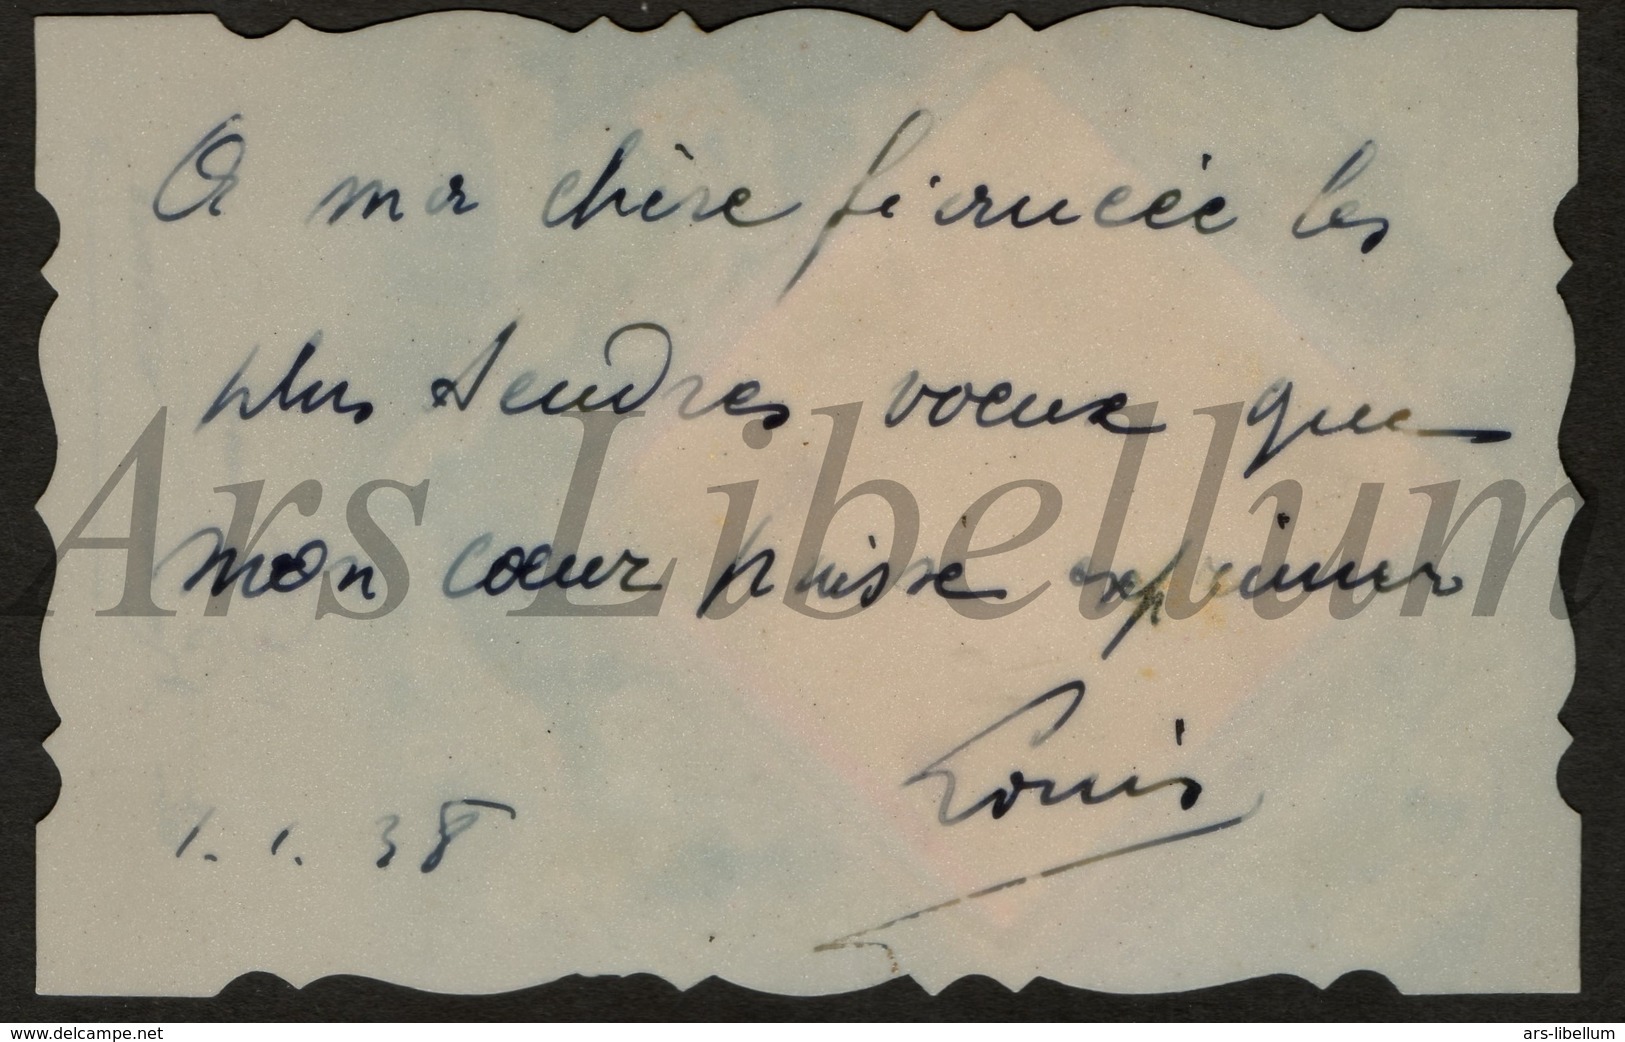 A ma chère fiancée les
plus tendres voeux que
mon coeur puisse exprimer
Louis
1.1.38
Ars Libellum
www.delcampe.net
ars-libellum